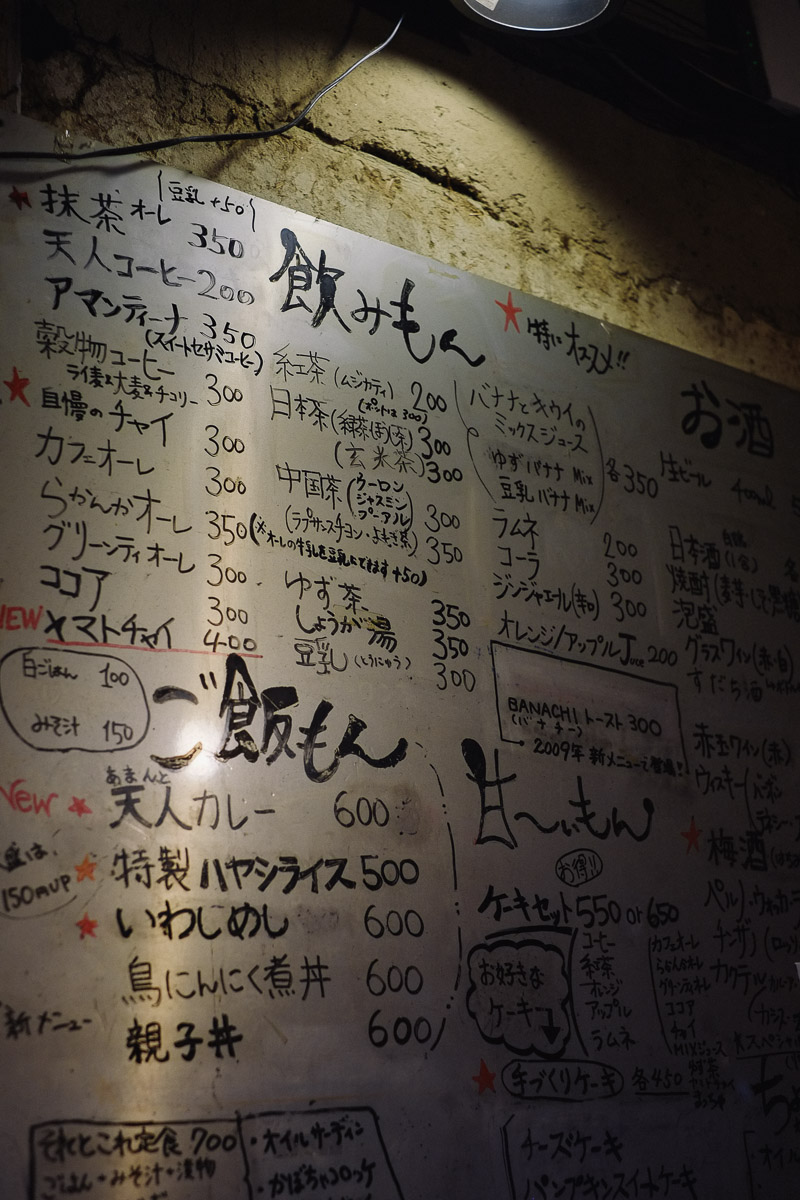 (豆乳+50)
★抹茶オーレ 350
天人コーヒー 200
アマンティーナ 350
(スイートセサミコーヒー)
穀物コーヒー
ライ麦&大麦&チコリー 300
★自慢のチャイ 300
カフェオーレ 300
らかんかオーレ 350
グリーンティオーレ 300
ココア 300
NEW ヤマトチャイ 400
飲みもん
紅茶(ムジカティ) 200
(ポットは300)
日本茶(緑茶・ほうじ茶) 300
(玄米茶) 300
中国茶(ウーロン
ジャスミン
プーアル) 300
(ラプサンスチョン・よもぎ茶) 350
(※オーレの牛乳を豆乳にできます+50)
ゆず茶 350
しょうが湯 350
豆乳(とうにゅう) 300
★特にオススメ!!
バナナとキウイの
ミックスジュース
ゆずバナナMix
豆乳バナナMix
各350
ラムネ 200
コーラ 300
ジンジャエール(辛口) 300
オレンジ/アップルJuce 200
BANACHIトースト 300
(バナチー)
2009年 新メニューで登場!!
お酒
生ビール 400ml
日本酒(1合)
焼酎(麦・芋・しそ・黒糖
泡盛
グラスワイン(赤・白)
すだち酒
赤玉ワイン(赤)
ウィスキー(バーボン
★梅酒
白ごはん 100
みそ汁 150
ご飯もん
あまんと
New ★天人カレー 600
150円UP
★特製ハヤシライス 500
★いわしめし 600
鳥にんにく煮丼 600
新メニュー 親子丼 600
甘〜いもん
お得!!
ケーキセット 550 or 650
お好きな
ケーキ
コーヒー
紅茶
オレンジ
アップル
ラムネ
カフェオーレ
らかんかオーレ
グリーンティオーレ
ココア
チャイ
MIXジュース
★手づくりケーキ 各450
チーズケーキ
パンプキンスイートケーキ
それとこれ定食 700
ごはん+みそ汁+漬物
・オイルサーディン
・かぼちゃコロッケ